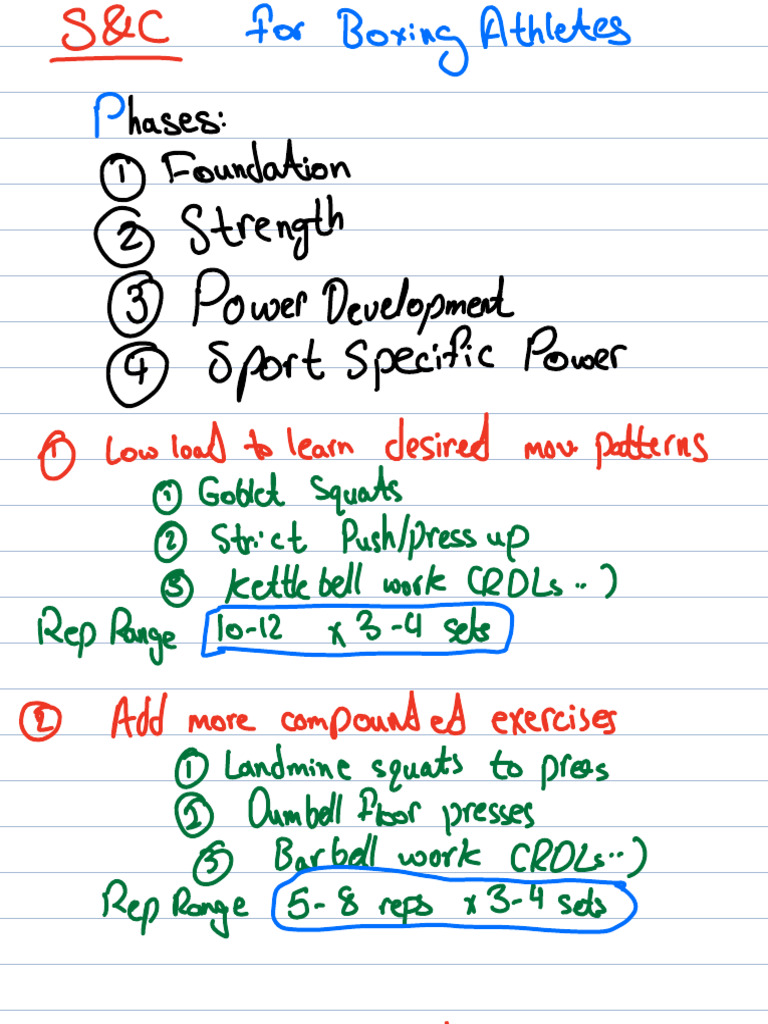 S&C for Boxing Athletes
Phases:
① Foundation
② Strength
③ Power Development
④ Sport Specific Power
① Low load to learn desired mov patterns
① Goblet Squats
② Strict Push/press up
③ Kettlebell work (RDLs..)
Rep Range 10-12 x 3-4 sets
② Add more compounded exercises
① Landmine squats to press
② Dumbell floor presses
③ Barbell work (RDLs..)
Rep Range 5-8 reps x 3-4 sets